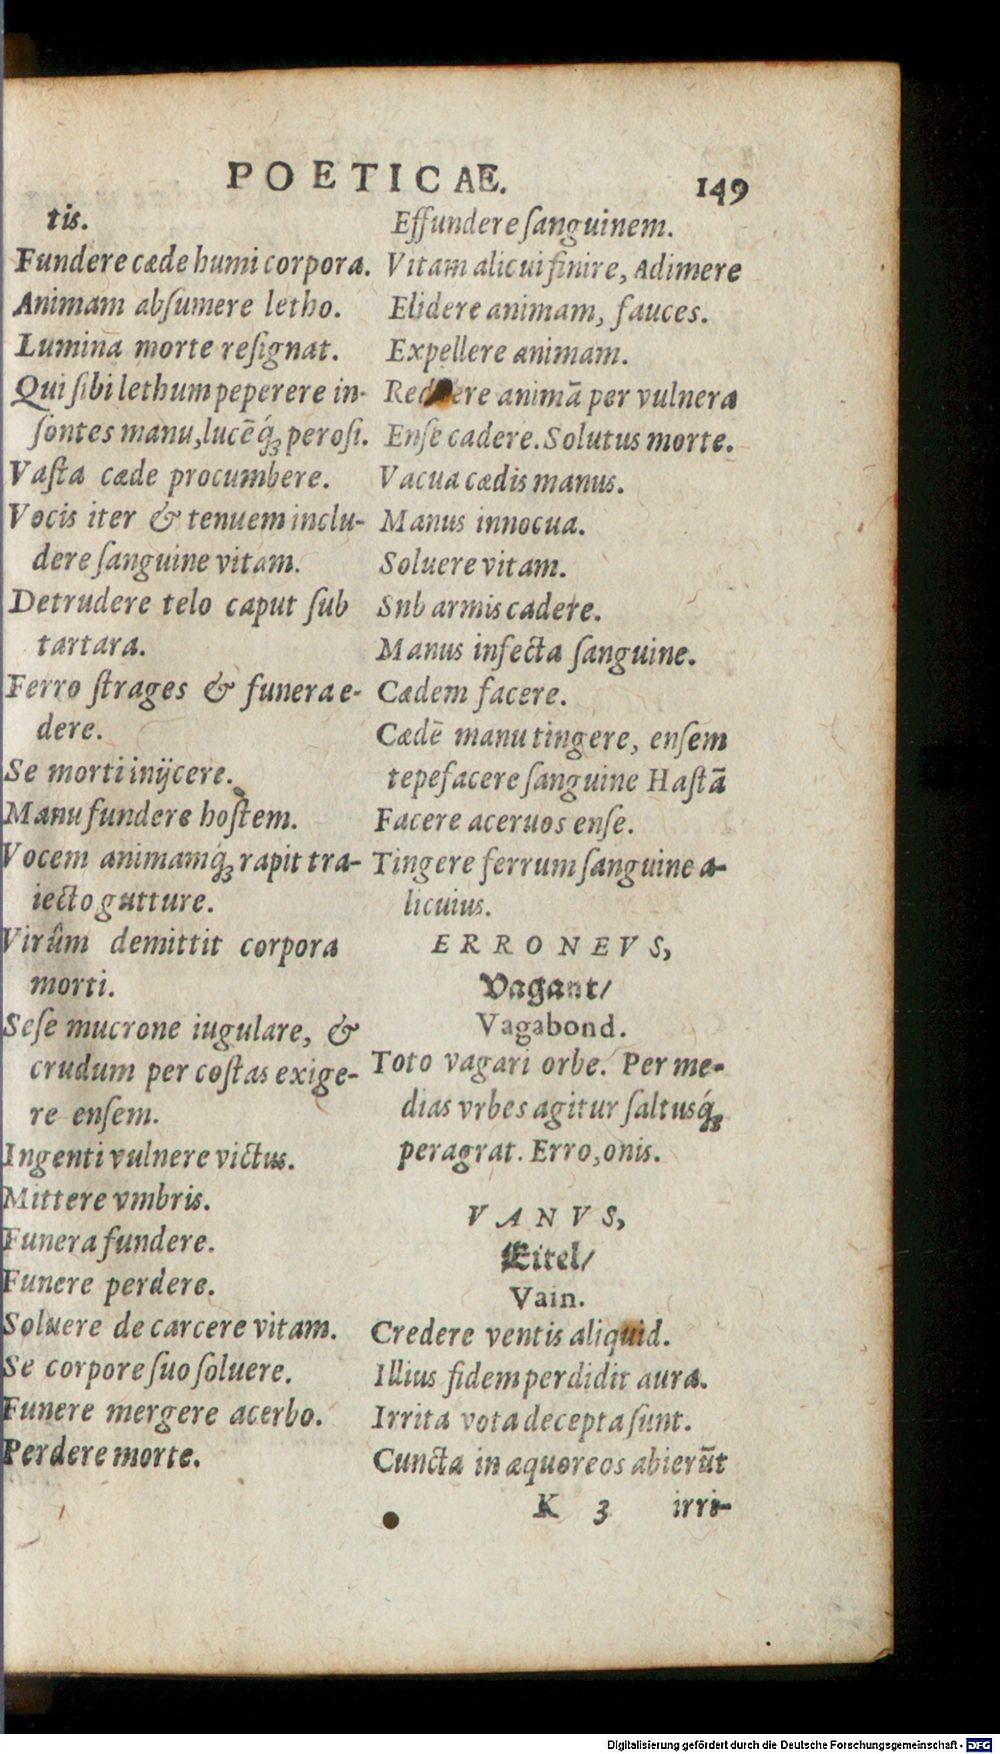 POETICAE.
149
tis.
Fundere cæde humi corpora.
Animam absumere letho.
Lumina morte resignat.
Qui sibi lethum peperere in-
sontes manu, lucēq́ꝫ perosi.
Vasta cæde procumbere.
Vocis iter & tenuem inclu-
dere sanguine vitam.
Detrudere telo caput sub
tartara.
Ferro strages & funera e-
dere.
Se morti inijcere.
Manu fundere hostem.
Vocem animamq́ꝫ rapit tra-
iecto gutture.
Virûm demittit corpora
morti.
Sese mucrone iugulare, &
crudum per costas exige-
re ensem.
Ingenti vulnere victus.
Mittere vmbris.
Funera fundere.
Funere perdere.
Soluere de carcere vitam.
Se corpore suo soluere.
Funere mergere acerbo.
Perdere morte.
Effundere sanguinem.
Vitam alicui finire, Adimere
Elidere animam, fauces.
Expellere animam.
animā per vulnera
Ense cadere. Solutus morte.
Vacua cædis manus.
Manus innocua.
Soluere vitam.
Snb armis cadere.
Manus infecta sanguine.
Cædem facere.
Cædē manu tingere, ensem
tepefacere sanguine Hastā
Facere aceruos ense.
Tingere ferrum sanguine a-
licuius.
ERRONEVS,
Vagant/
Vagabond.
Toto vagari orbe. Per me-
dias vrbes agitur saltusq́ꝫ
peragrat. Erro, onis.
VANVS,
Eitel/
Vain.
Credere ventis aliquid.
Illius fidem perdidit aura.
Irrita vota decepta sunt.
Cuncta in æquoreos abierūt
K 3 irri-
Digitalisierung gefördert durch die Deutsche Forschungsgemeinschaft - DFG